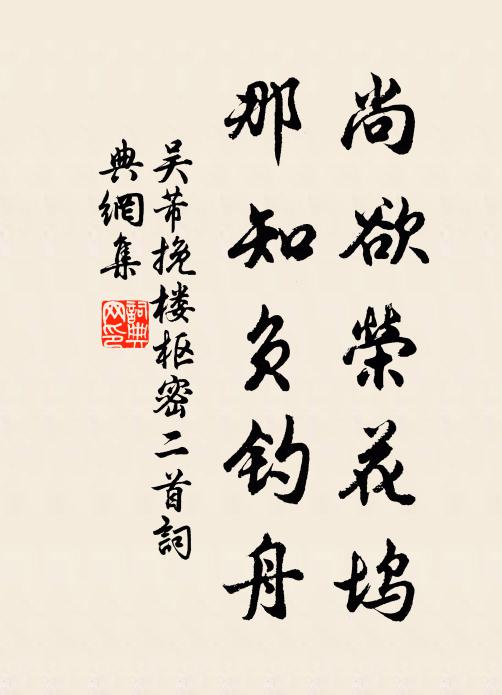 尚欲榮花坞
那知負釣舟
吴芾挽楼枢密二首詞
典網集
詞典网印